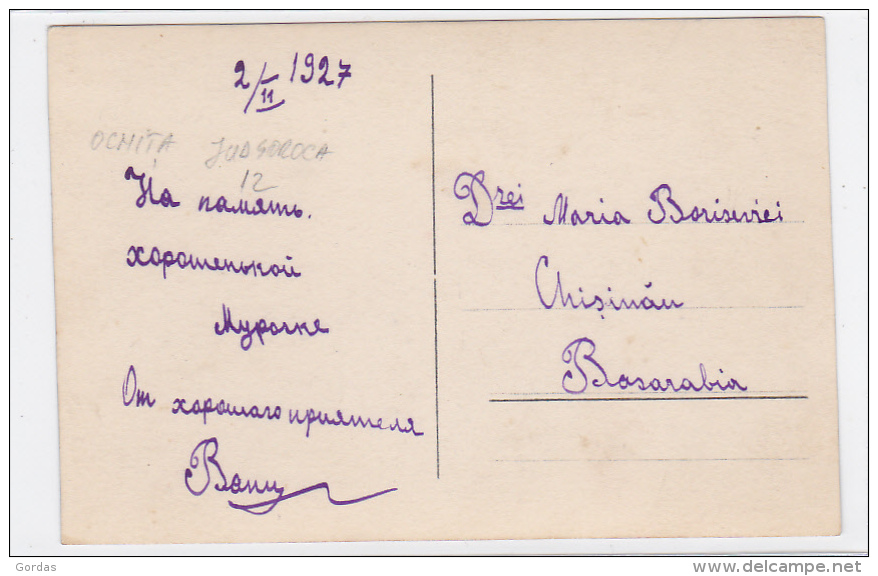 2/11 1927
OCNIȚA JUD SOROCA
12
На память.
хорошенькой
Мурочке
От хорошаго приятеля
Вани
Drei Maria Borisevici
Chișinău
Basarabia
Gordas
delcampe.net